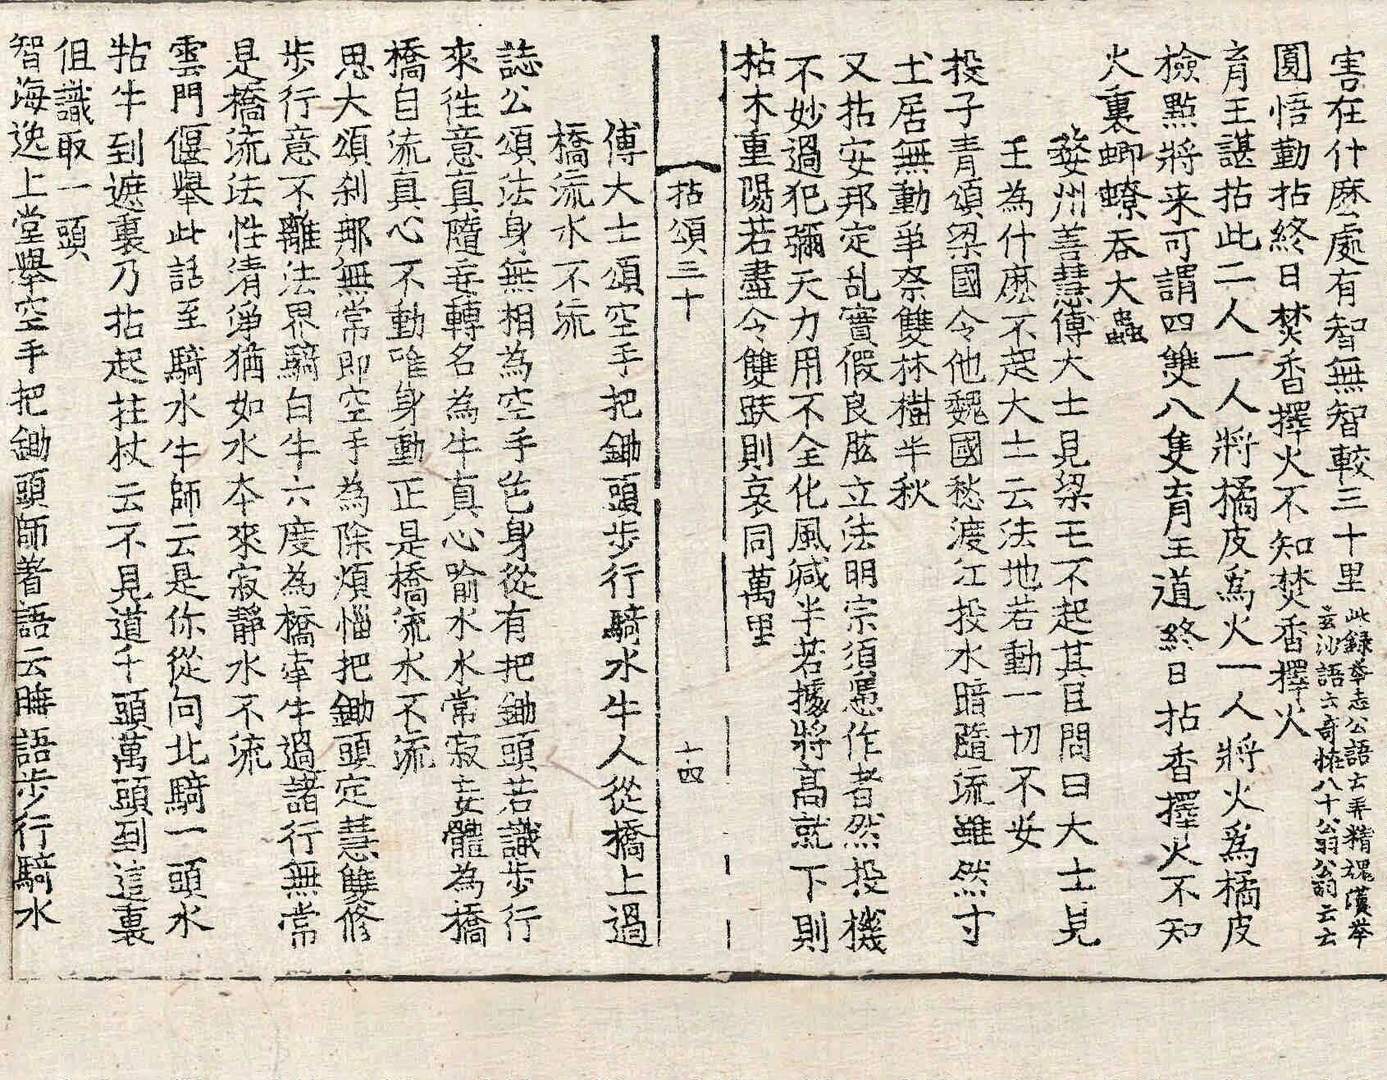 害在什麽處有智無智較三十里
此錄擧志公語云弄精魂漢擧
玄沙語云奇怪八十公翁公
圓悟勤拈終日焚香擇火不知焚香擇火
育王諶拈此二人一人將橘皮爲火一人將火爲橘皮
檢點將来可謂四雙八隻育王道終日拈香擇火不知
火裏蝍蟟呑大蟲
婺州善慧傅大士見梁王不起其臣問曰大士見
王為什麽不起大士云法地若動一切不安
投子青頌梁國令他魏國愁渡江投水暗隨流雖然寸
土居無動爭奈雙林樹半秋
又拈安邦定乱實假良肱立法明宗須凴作者然投機
不妙過犯彌天力用不全化風减半若據將高就下則
枯木重陽若盡令雙趺則哀同萬里
拈頌三十
十四
傅大士頌空手把鋤頭步行騎水牛人從橋上過
橋流水不流
誌公頌法身無相為空手色身從有把鋤頭若識步行
來徃意真隨妄轉名為牛真心喻水水常寂妄體為橋
橋自流真心不動唯身動正是橋流水不流
思大頌刹那無常即空手為除煩惱把鋤頭定慧雙修
步行意不離法界騎白牛六度為橋牽牛過諸行無常
是橋流法性清淨猶如水夲來寂靜水不流
雲門偃擧此話至騎水牛師云是你從向北騎一頭水
牯牛到遮裏乃拈起拄杖云不見道千頭萬頭到這裏
但識取一頭
智海逸上堂擧空手把鋤頭師着語云晦語步行騎水